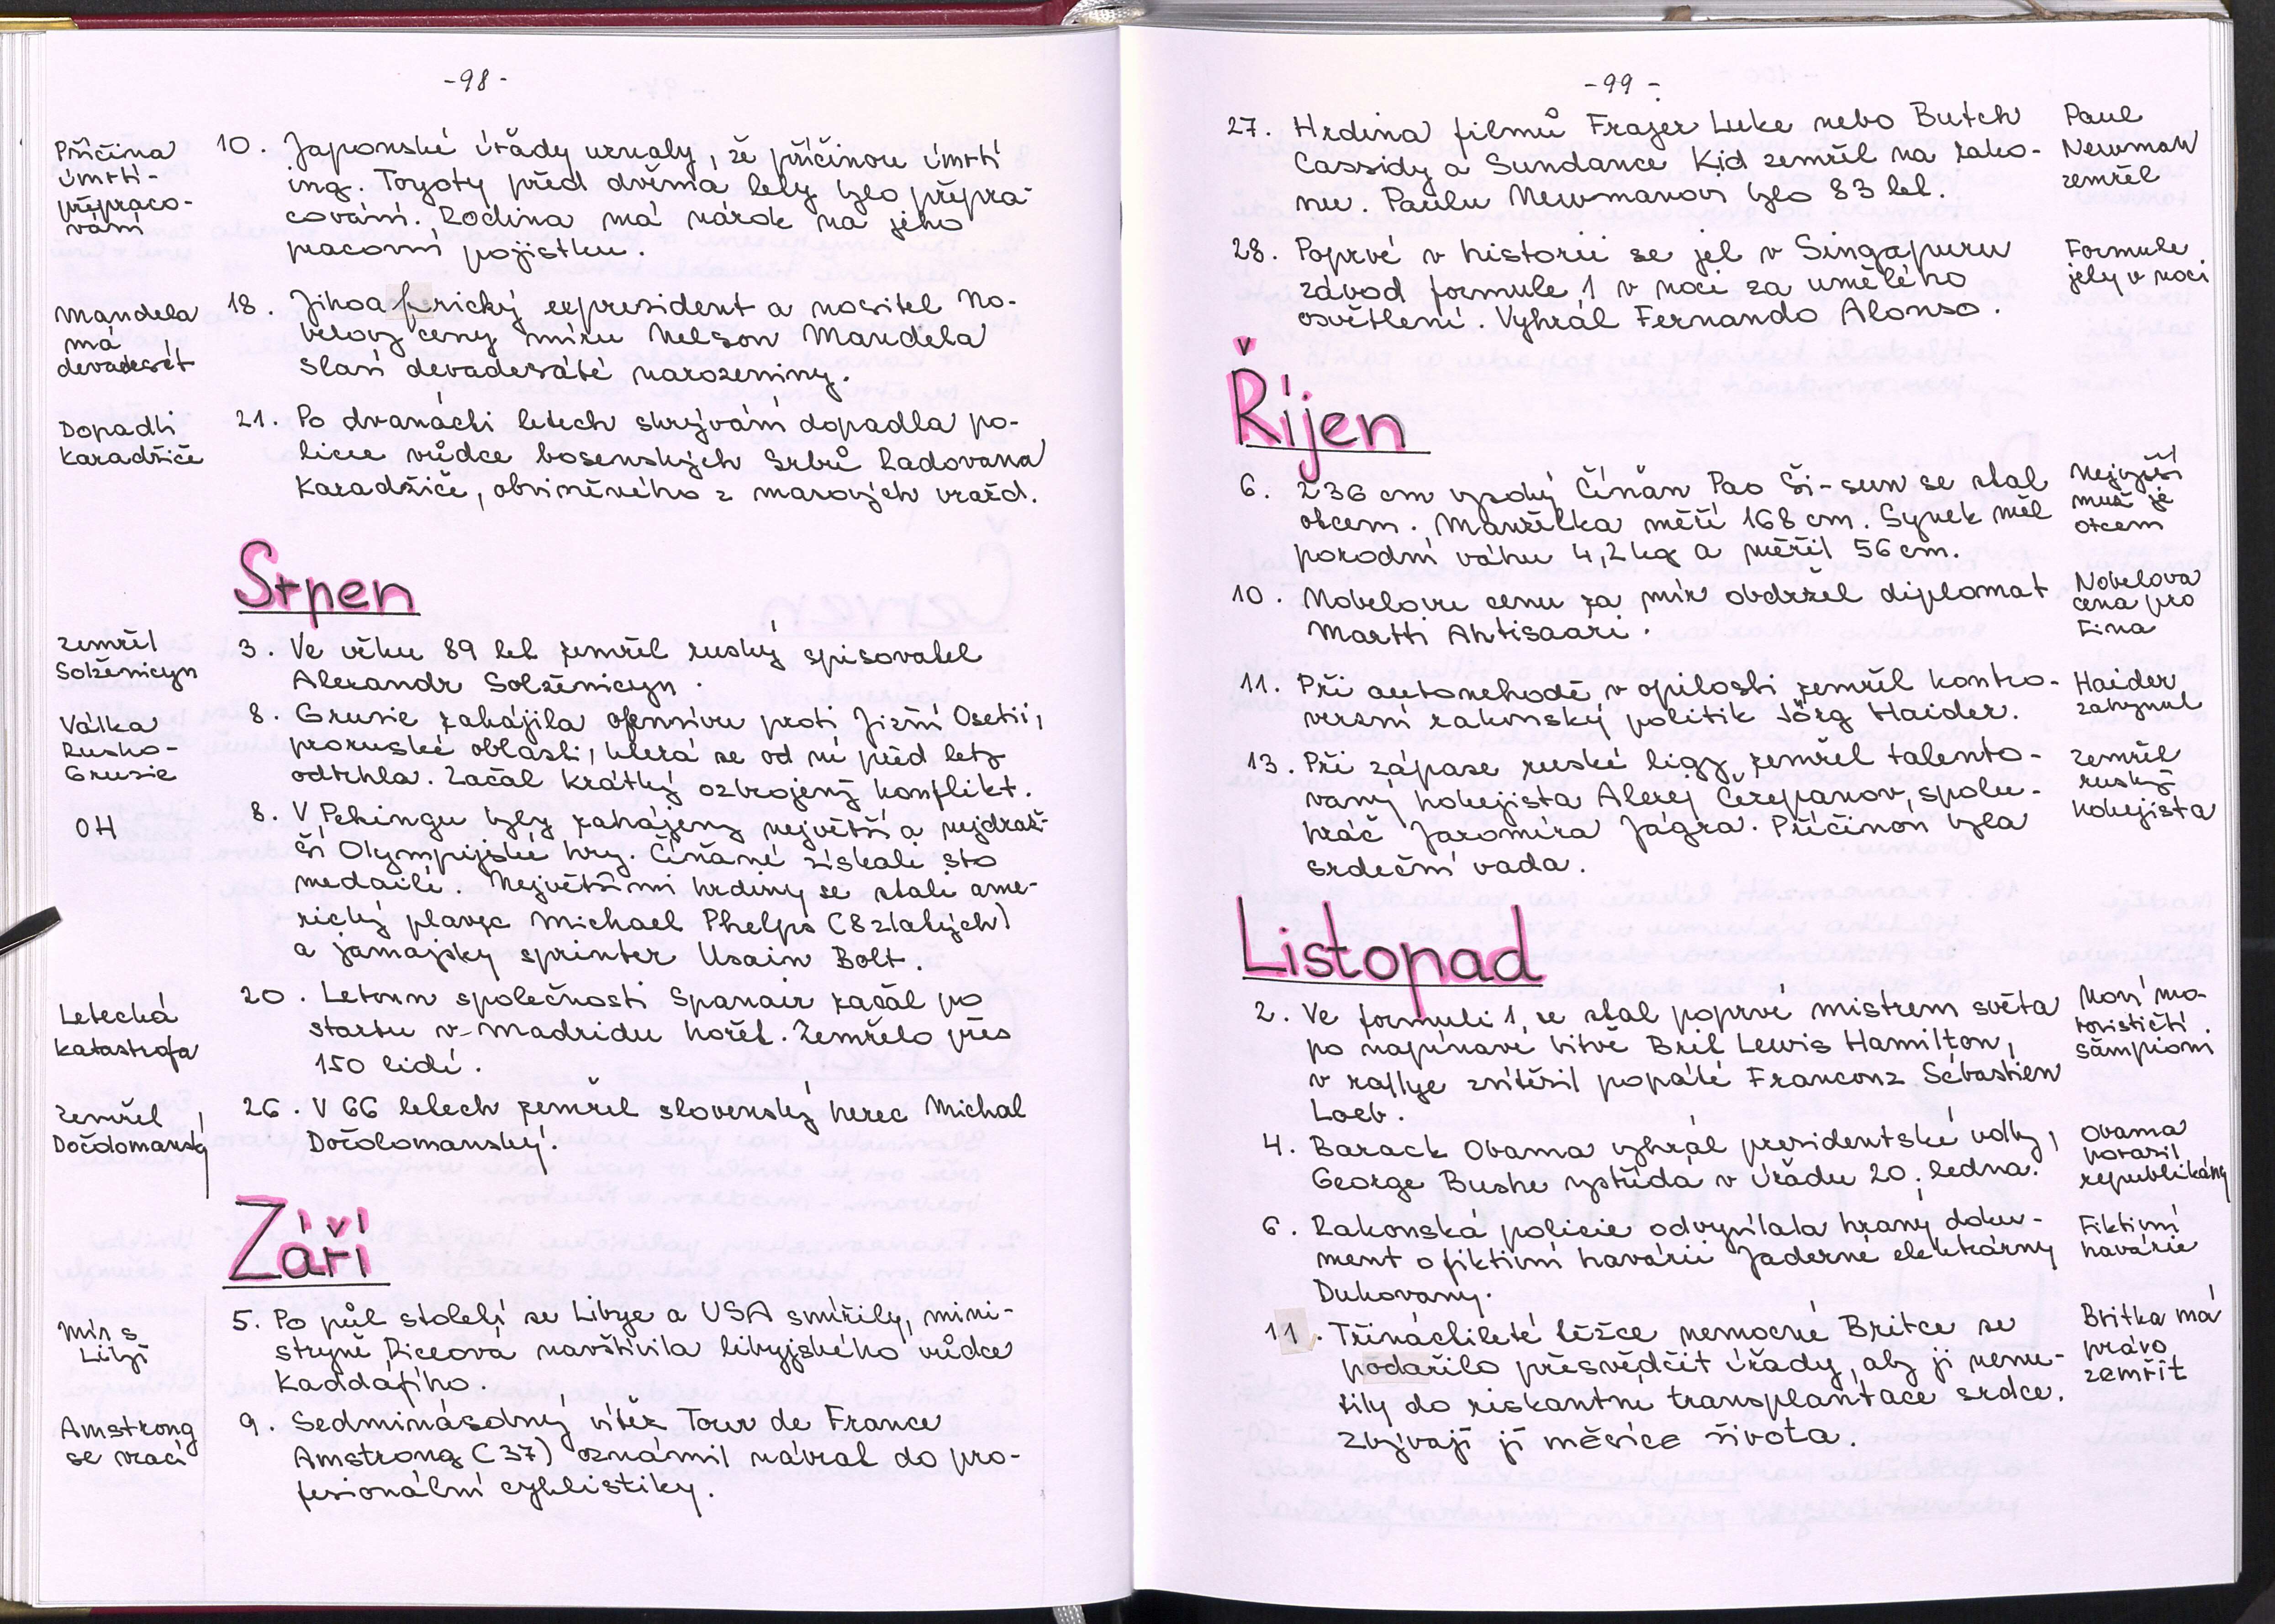 -98-
Příčina
úmrtí-
přepraco-
vání
10. Japonské úřady uznaly, že příčinou úmrtí
ing. Toyoty před dvěma lety bylo přepra-
cování. Rodina má nárok na jeho
pracovní pojistku.
Mandela
má
devadesát
18. Jihoafrický exprezident a nositel No-
belovy ceny míru Nelson Mandela
slaví devadesáté narozeniny.
Dopadli
Karadžiče
21. Po dvanácti letech skrývání dopadla po-
licie vůdce bosenských Srbů Radovana
Karadžiče, obviněného z masových vražd.
Srpen
Zemřel
Solženicyn
3. Ve věku 89 let zemřel ruský spisovatel
Alexandr Solženicyn.
Válka
Rusko-
Gruzie
8. Gruzie zahájila ofenzivu proti Jižní Osetii,
proruské oblasti, která se od ní před lety
odtrhla. Začal krátký ozbrojený konflikt.
OH
8. V Pekingu byly zahájeny největší a nejdraž-
ší Olympijské hry. Číňané získali sto
medailí. Největšími hrdiny se stali ame-
rický plavec Michael Phelps (8 zlatých)
a jamajský sprinter Usain Bolt.
Letecká
katastrofa
20. Letoun společnosti Spanair začal po
startu v Madridu hořet. Zemřelo přes
150 lidí.
Zemřel
Dočolomanský
26. V 66 letech zemřel slovenský herec Michal
Dočolomanský.
Září
Mír s
Libyí
5. Po půl století se Libye a USA smířily, mini-
stryně Riceová navštívila libyjského vůdce
Kaddáfího.
Amstrong
se vrací
9. Sedminásobný vítěz Tour de France
Amstrong (37) oznámil návrat do pro-
fesionální cyklistiky.
-99-
27. Hrdina filmů Frajer Luke nebo Butch
Cassidy a Sundance Kid zemřel na rako-
nu. Paulu Newmanovi bylo 83 let.
Paul
Newman
zemřel
28. Poprvé v historii se jel v Singapuru
závod formule 1 v noci za umělého
osvětlení. Vyhrál Fernando Alonso.
Formule
jely v noci
Říjen
6. 236 cm vysoký Číňan Pao Ši-šun se stal
otcem. Manželka měří 168 cm. Synek měl
porodní váhu 4,2 kg a měřil 56 cm.
Nejvyšší
muž je
otcem
10. Nobelovu cenu za mír obdržel diplomat
Martti Ahtisaari.
Nobelova
cena pro
Fina
11. Při autonehodě v opilosti zemřel kontro-
verzní rakouský politik Jörg Haider.
Haider
zahynul
13. Při zápase ruské ligy zemřel talento-
vaný hokejista Alexej Čerepanov, spolu-
hráč Jaromíra Jágra. Příčinou byla
srdeční vada.
Zemřel
ruský
hokejista
Listopad
2. Ve formuli 1 se stal poprvé mistrem světa
po napínavé bitvě Brit Lewis Hamilton,
v rallye zvítězil popáté Francouz Sébastien
Loeb.
Noví mo-
torističtí
šampioni
4. Barack Obama vyhrál prezidentské volby,
George Bushe vystřídá v úřadu 20. ledna.
Obama
porazil
republikány
6. Rakouská policie odvysílala hraný doku-
ment o fiktivní havárii Jaderné elektrárny
Dukovany.
Fiktivní
havárie
11. Třináctileté těžce nemocné Britce se
podařilo přesvědčit úřady, aby ji nenu-
tily do riskantní transplantace srdce.
Zbývají jí měsíce života.
Britka má
právo
zemřít